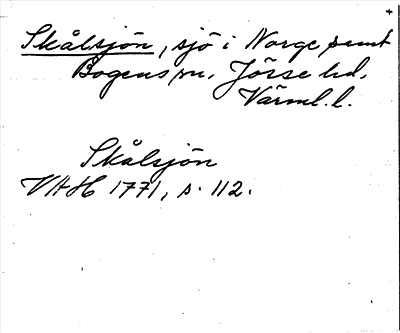 Skålsjön, sjö i Norge samt
Bogens sn, Jösse hd,
Värml. l.
Skålsjön
VAH 1771, s. 112.